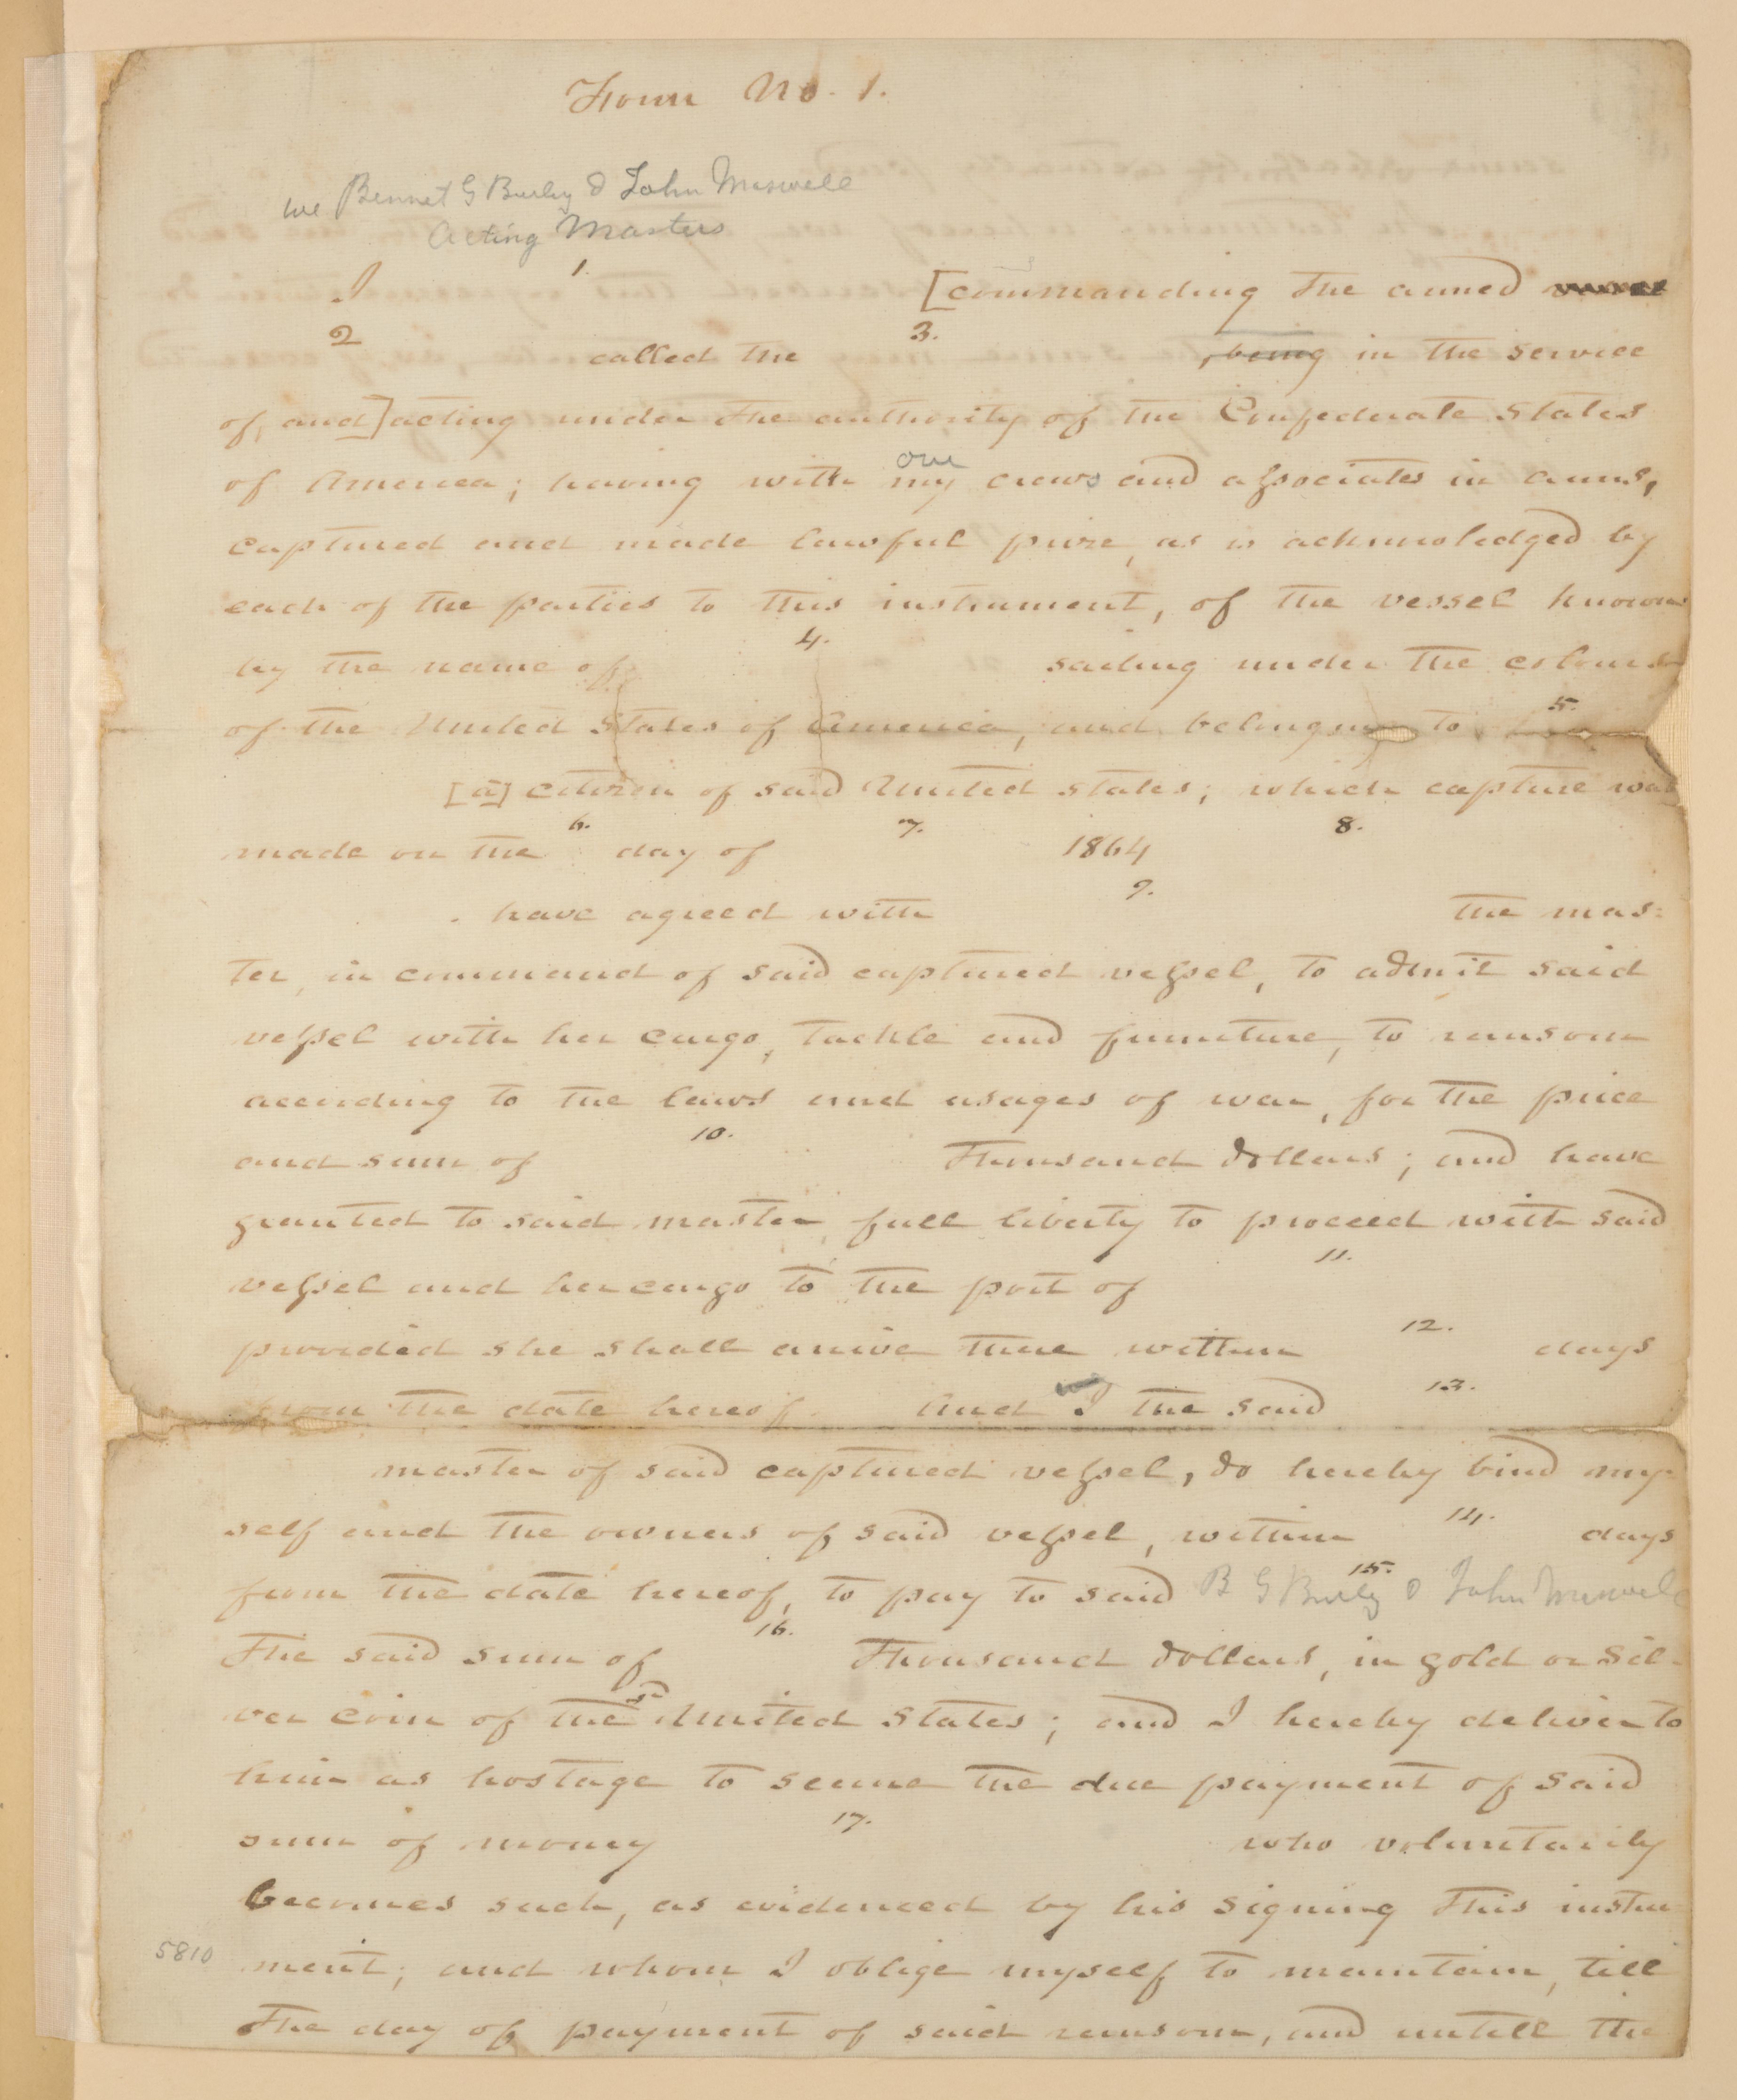 Form No. 1.
we Bennet G Burley & John Maxwell
Acting Masters
1.
I [commanding the armed
2 3.
called the , being in the service
of, and] acting under the authority of the Confederate States
our
of America; having with my crews and associates in arms,
captured and made lawful prize, as is acknowledged by
each of the parties to this instrument, of the vessel known
4.
by the name of sailing under the colours
5.
of the United States of America, and belonging to
[a] citizen of said United States; which capture was
6. 7. 8.
made on the day of 1864
9.
have agreed with the mas=
ter, in command of said captured vessel, to admit said
vessel with her cargo, tackle and furniture, to ransom
according to the laws and usages of war, for the price
10.
and sum of Thousand dollars; and have
granted to said master, full liberty to proceed with said
11.
vessel and her cargo to the port of
12.
provided she shall arive there within days
13.
from the date hereof. And I the said
master of said captured vessel, do hereby bind my-
14.
self and the owners of said vessel, within days
15.
from the date hereof, to pay to said B G Burley & John Maxwell
16.
The said sum of Thousand dollars, in gold or sil-
sd
ver coin of the United States; and I hereby deliver to
him as hostage to secure the due payment of said
17.
sum of money who voluntarily
becomes such, as evidenced by his signing this instru-
5810
ment; and whom I oblige myself to maintain, till
the day of payment of said ransom, and untill the